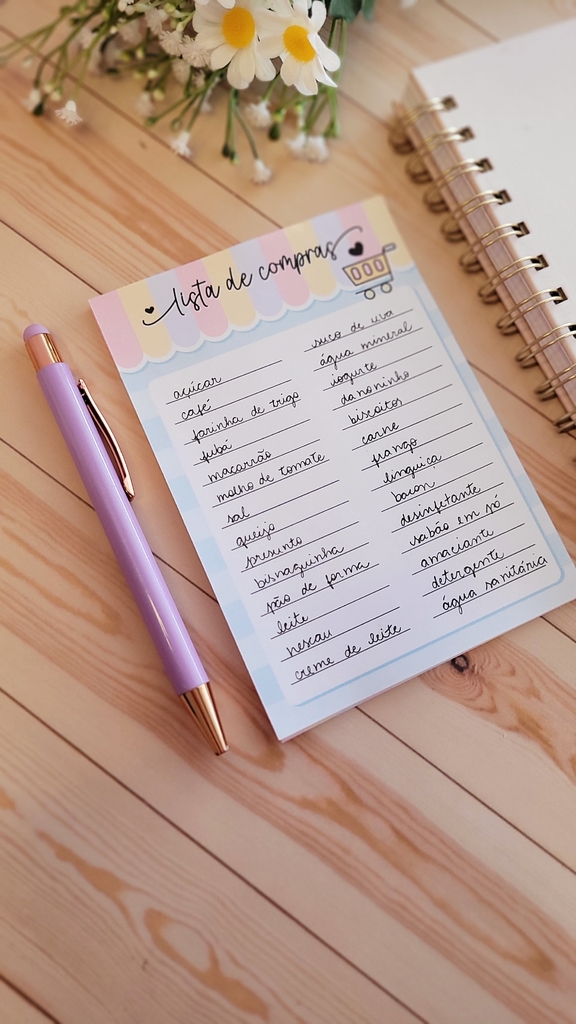 lista de compras
açúcar
café
farinha de trigo
fubá
macarrão
molho de tomate
sal
queijo
presunto
bisnaguinha
pão de forma
leite
nescau
creme de leite
suco de uva
água mineral
iogurte
danoninho
biscoitos
carne
frango
linguiça
bacon
desinfetante
sabão em pó
amaciante
detergente
água sanitária